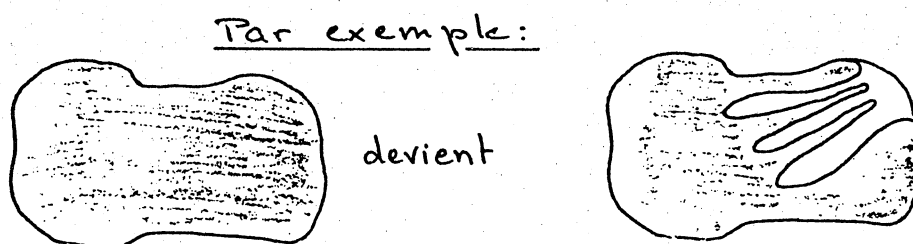 Par exemple:
devient